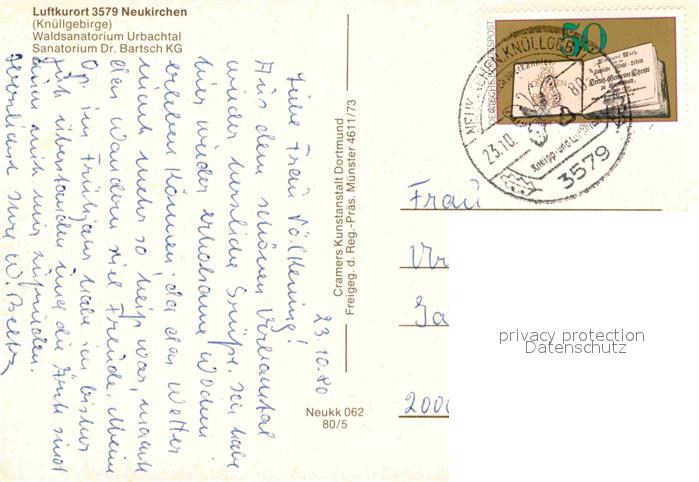 Luftkurort 3579 Neukirchen
(Knüllgebirge)
Waldsanatorium Urbachtal
Sanatorium Dr. Bartsch KG
23.10.80
Liebe Frau Völkening!
Aus dem schönen Urbachtal
wieder herzliche Grüße. Ich habe
hier wieder erholsame Wochen
erleben können, da das Wetter
nicht mehr so heiß war, macht
das Wandern viel Freude. Meine
Op. im Frühjahr habe ich bisher
gut überstanden und die Ärzte sind
mit mir zufrieden.
Herzlichst Ihre W.
Cramers Kunstanstalt Dortmund
Freigeg. d. Reg.-Präs. Münster 4611/73
Neukk 062
80/5
50
NEUKIRCHEN, KNÜLLGEB
23.10.
Kneipp- und Luftkurort
3579
Frau
2000
privacy protection
Datenschutz